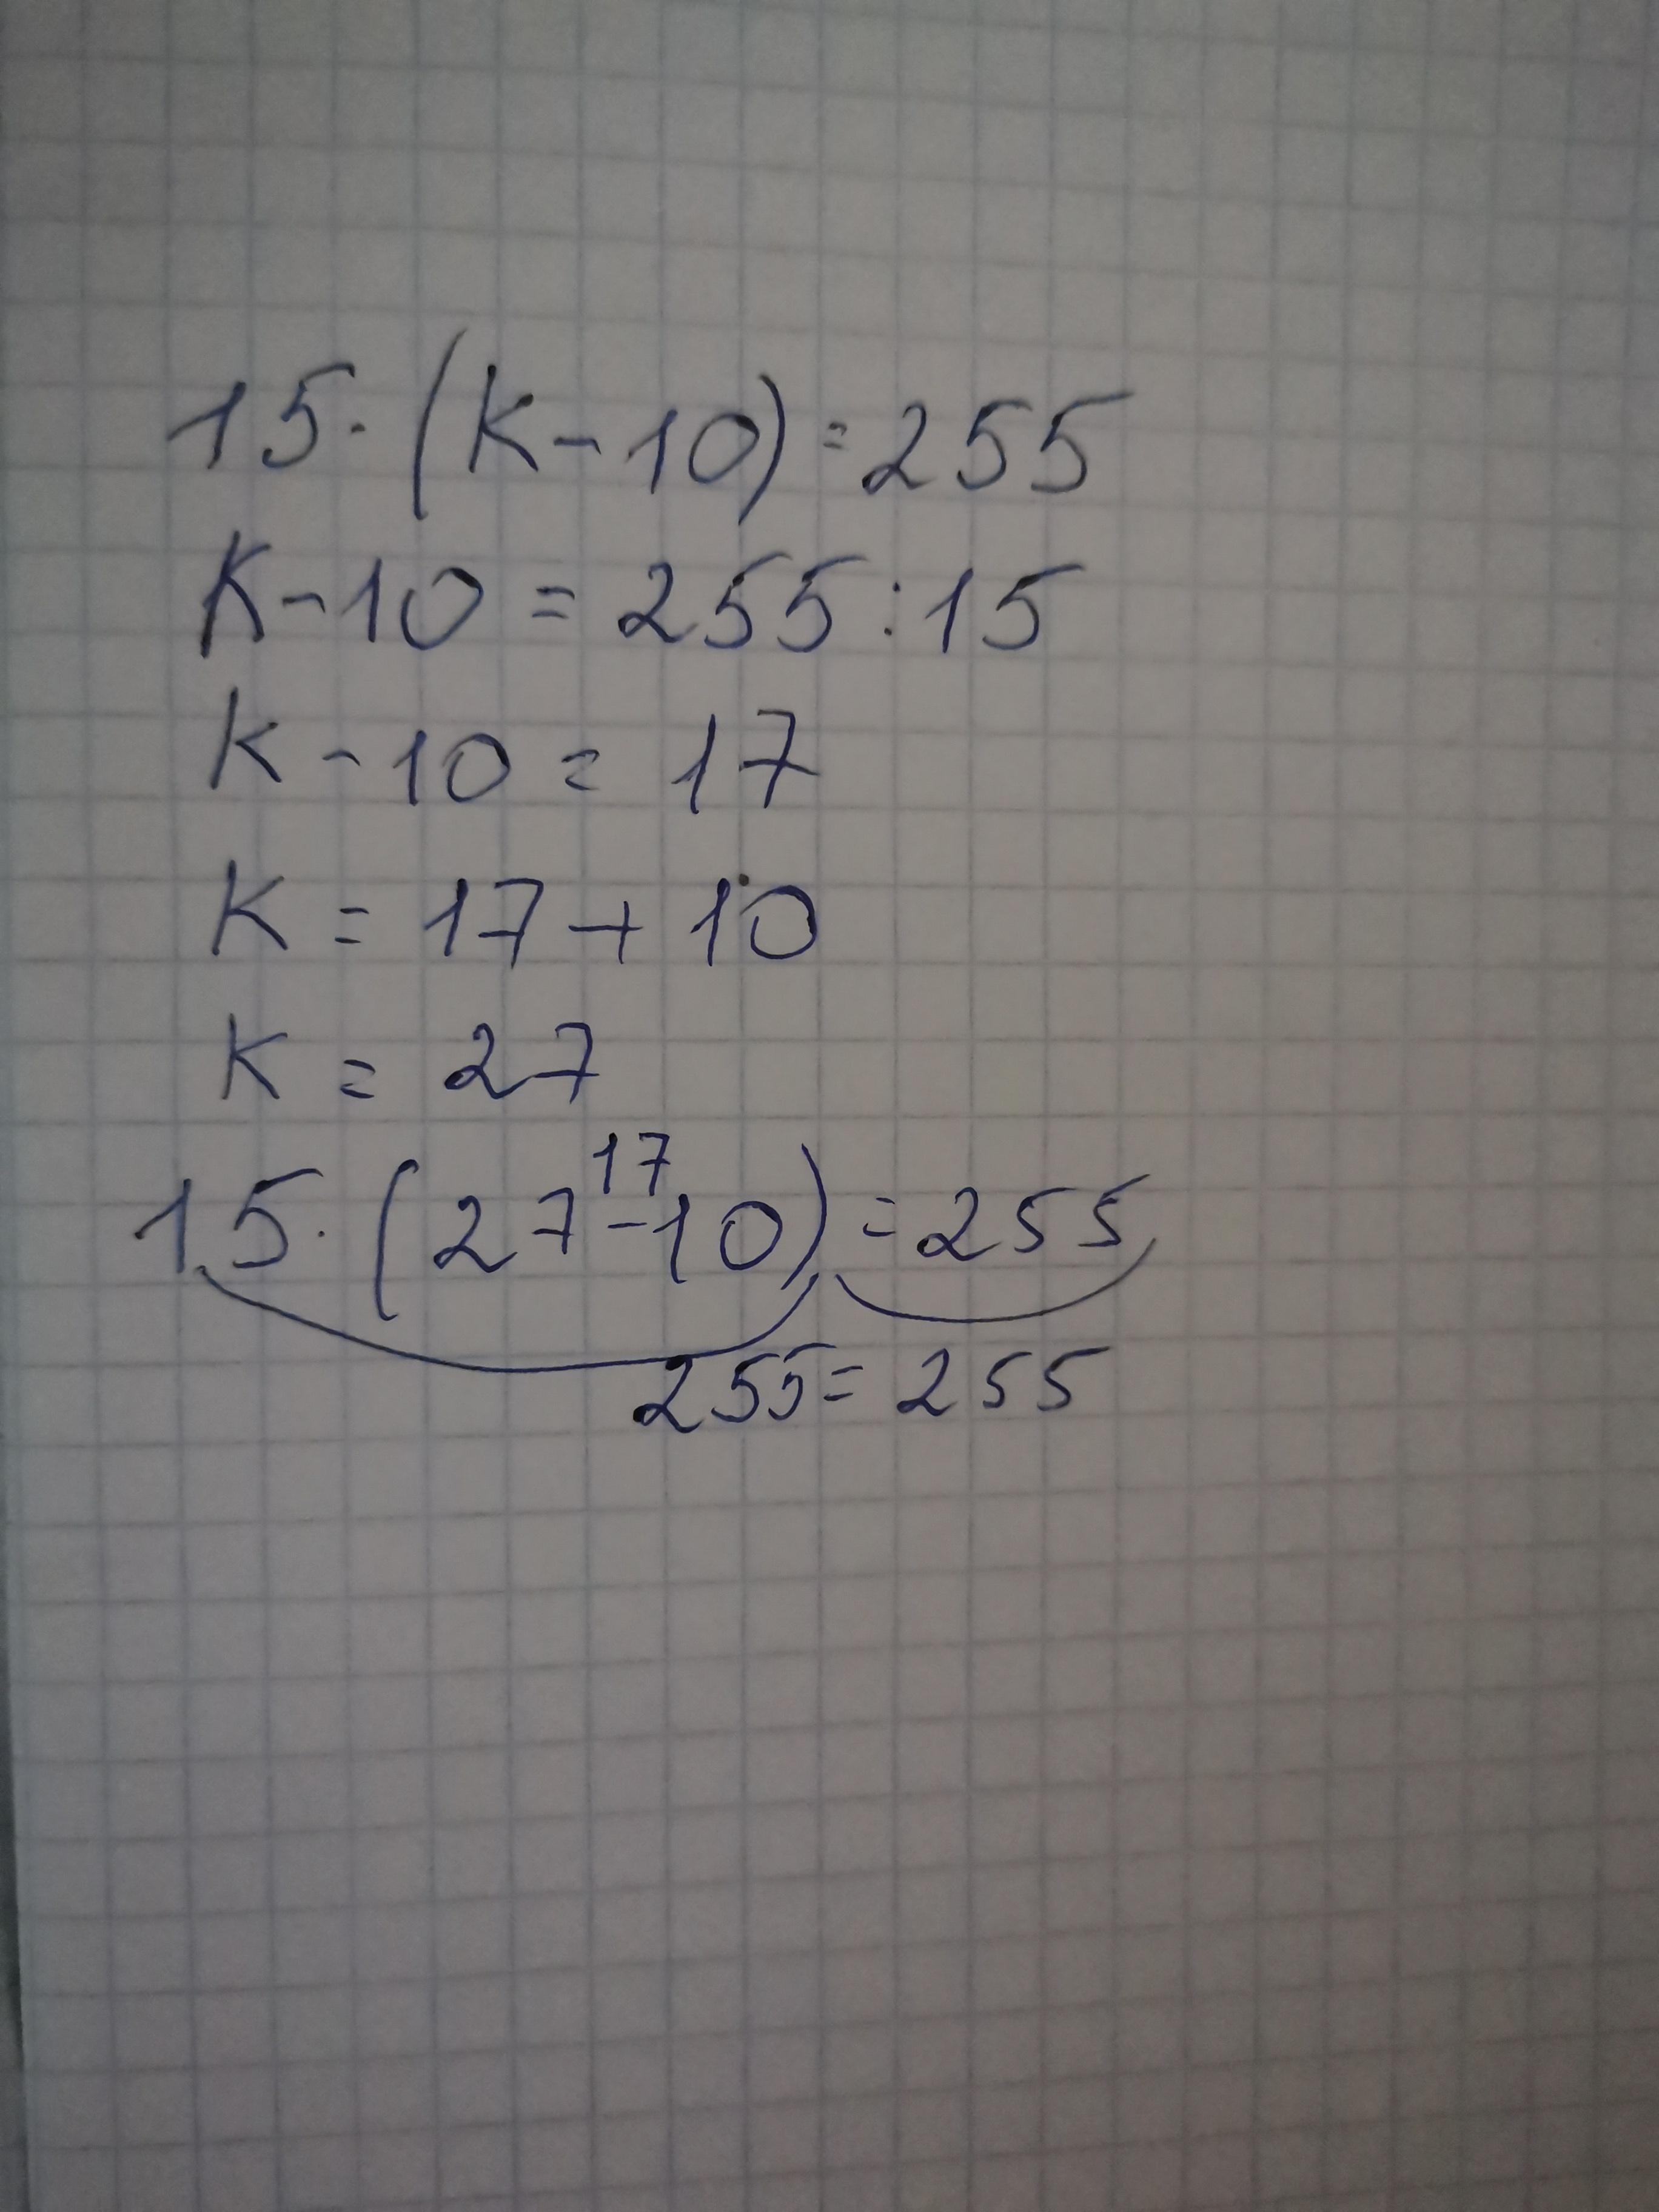 15·(K-10)=255
K-10=255:15
K-10=17
K=17+10
K=27
17
15·(27-10)=255
255=255